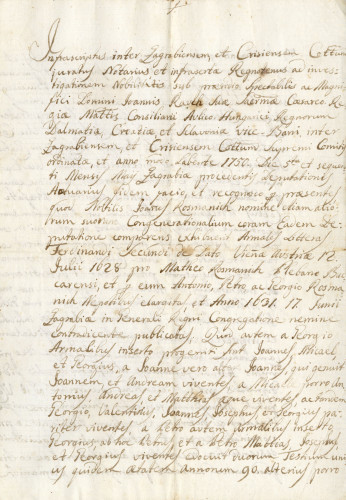 Infrascriptus inter Zagrabiensem, et Crisiensem Cottum
Juratus Notarius et infraserta Regnetenus ad inves-
tigationem Nobilitatis sub præmio Spectabilis ac Magni-
fici Domini Joannis Rauch Sua Sacrma Cæsareo Re-
gia Mattis Consiliarii Aulico-Hungarici Regnorum
Dalmatia, Croatia et Sclavonia Vice-Bani, inter
Zagrabiensem, et Crisiensem Cottum Supremi Comitis
ordinata, et anno modo labente 1750. Die 5ta et sequen-
ti Mensis May Zagrabia procedentis Deputationis
Actuarius fidem facio, et recognosco præsentes
quod Nobilis Joannes Kosmanich nomine etiam alio-
rum suorum Congenerationalium coram Eadem De-
putatione comparens exhibuerit Armales Litteras
Ferdinandi Secundi de Dato Viena Austria 12.
Julii 1628. pro Matheo Kosmanich Plebano Bu-
carensi, et per eum Antonio, Petro, ac Georgio Kosma-
nich Nepotibus elargitas et Anno 1631. 17. Junii
Zagrabia in Generali Regni Congregatione nemine
Contradicente publicatas. Quod autem a Georgio
Armalibus inserto progeniti sunt Joannes, Micael
et Georgius, a Joanne vero alter Joannes, qui genuit
Joannem, et Andream viventes, a Micaele porro An-
tonius, Andreas, et Matthias æque viventes, ac tandem
Georgio, Valentinus, Joannes, Josephus et Georgius pa-
riter viventes, a Petro autem Armalibus inserto
Georgius, ab hoc Petrus, et a Petro Mathias, Josephus
et Georgius viventes evocuit duorum Testium uni-
us quidem ætatem Annorum 90. alterius porro